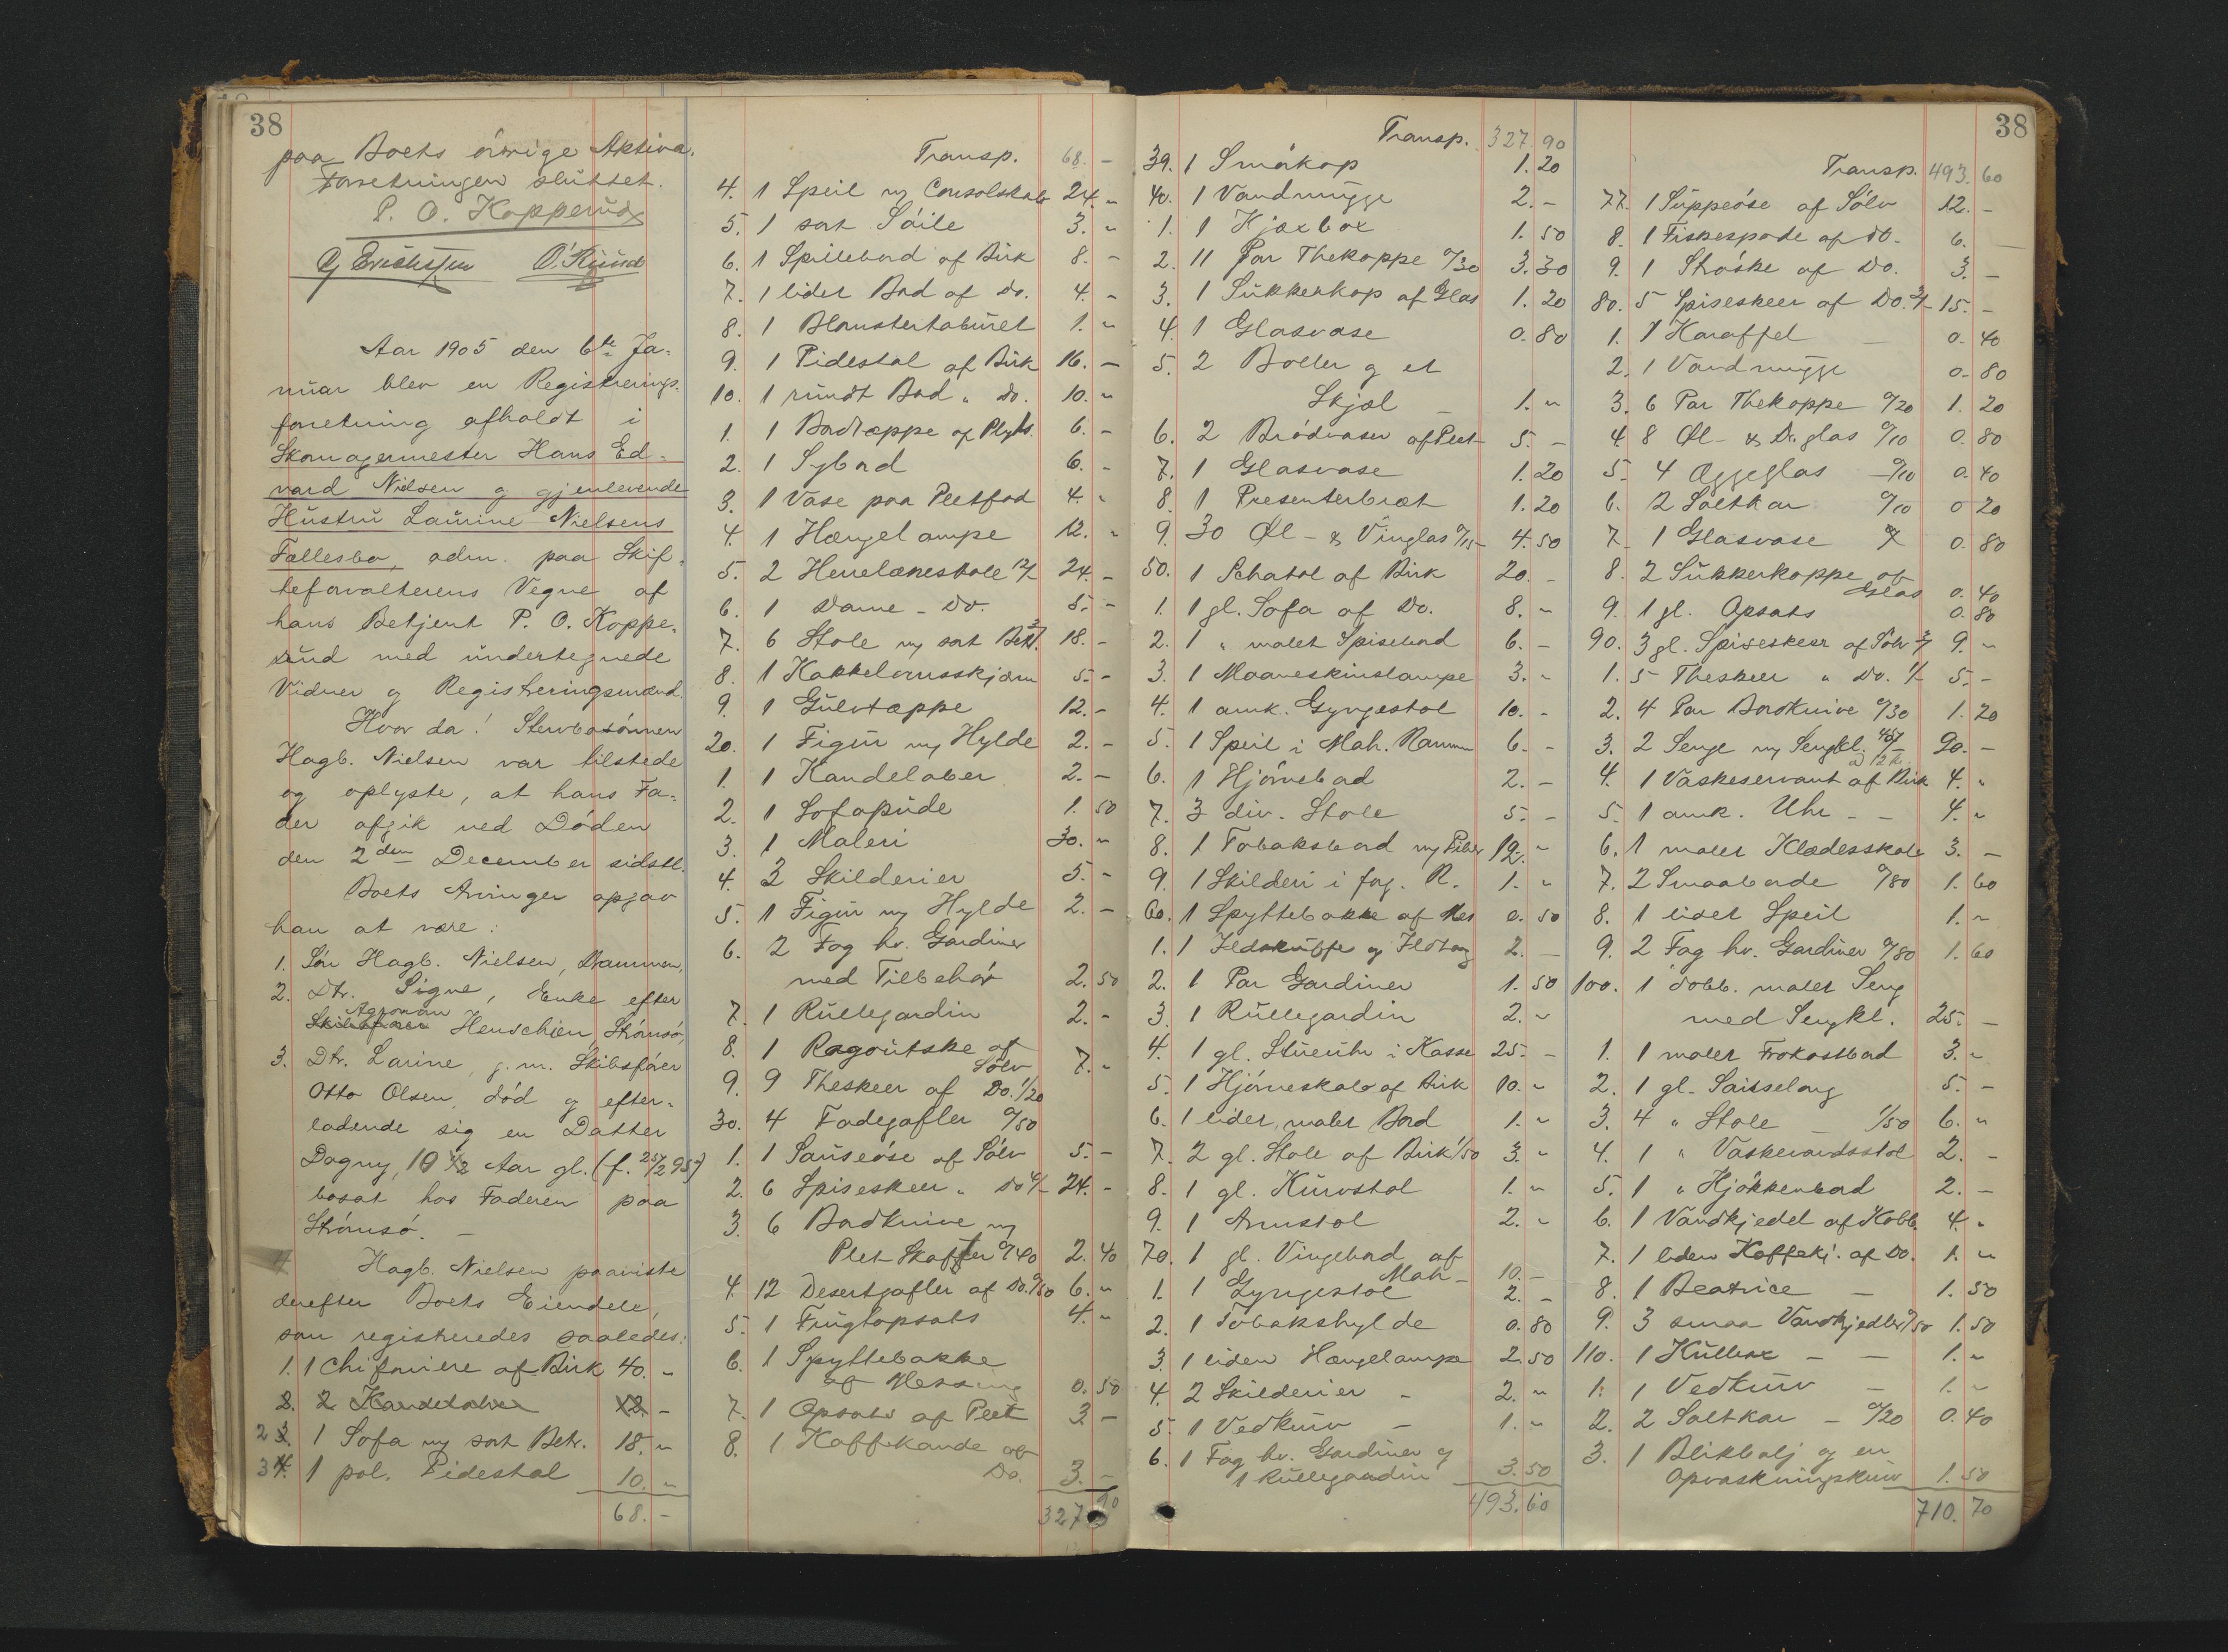 38
paa Boets øvrige Aktiva.
Forretningen sluttet.
P. O. Kopperud
O. Kjus
Aar 1905 den 6te Ja-
nuar blev en Registrerings-
forretning afholdt i
Skomagermester Hans Ed-
vard Nielsen og gjenlevende
Hustru Laurine Nielsens
Fællesbo, adm. paa Skif-
teforvalterens Vegne af
hans Betjent P. O. Koppe-
rud med undertegnede
Vidner og Registreringsmænd.
Hvor da! Stervbosønnen
Hagb. Nielsen var tilstede
og oplyste, at hans Fa-
der afgik ved Døden
den 2den December sidstl.
Boets Arvinger opgav
han at være:
1. Søn Hagb. Nielsen, Drammen,
2. Dtr. Signe, Enke efter
Agronom
Skibsfører Henschien, Strømsø,
3. Dtr. Larine, g. m. Skibsfører
Otto Olsen, død og efter-
ladende sig en Datter
Dagny, 10 1/2 Aar gl. (f. 25/2 95)
bosat hos Faderen paa
Strømsø. –
Hagb. Nielsen paaviste
derefter Boets Eiendele,
som registreredes saaledes:
1. 1 Chifoniere af Birk 40. "
2. 2 Kandelaber 12. –
2 3. 1 Sofa m/ sort Betr. 18. "
3 4. 1 pol. Pidestal 10. "
68. –
Transp. 68. –
4. 1 Speil m/ Consolskab 24. "
5. 1 sort Søile 3. "
6. 1 Spillebord af Birk 8. –
7. 1 lidet Bord af Do. 4. "
8. 1 Blomstertaburet 1. "
9. 1 Pidestal af Birk 16. –
10. 1 rundt Bord " Do. 10. "
1. 1 Bordtæppe af Plyds. 6. –
2. 1 Sybord 6. –
3. 1 Vase paa Pletfod 4. "
4. 1 Hængelampe 12. "
5. 2 Herrelænestole 12/- 24. –
6. 1 Dame - Do. 5. –
7. 6 Stole m/ sort Betr. 3/- 18. –
8. 1 Kakkelovnsskjærm 5. –
9. 1 Gulvtæppe 12. –
20. 1 Figur m/ Hylde 2. –
1. 1 Kandelaber 2. –
2. 1 Sofapude 1. 50
3. 1 Maleri 30. "
4. 3 Skilderier 5. –
5. 1 Figur m/ Hylde 2. –
6. 2 Fag hv. Gardiner
med Tilbehør 2. 50
7. 1 Rullegardin 2. –
8. 1 Ragoutske af
Sølv 7. "
9. 9 Theskeer af Do. 1/20
30. 4 Fadegafler 0/50
1. 1 Sauseøse af Sølv 5. –
2. 6 Spiseskeer " Do 4/- 24. –
3. 6 Bordknive m/
Plet Skafter 0/40 2. 40
4. 12 Desertgafler af Do. 0/50 6. "
5. 1 Frugtopsats 4. "
6. 1 Spyttebakke
af Messing 0. 50
7. 1 Opsats af Plet 3. –
8. 1 Kaffekande af
Do. 3. –
327. 90
Transp. 327. 90
39. 1 Småkop 1. 20
40. 1 Vandmugge 2. –
1. 1 Kjæxbox 1. 50
2. 11 Par Thekoppe 0/30 3. 30
3. 1 Sukkerkop af Glas 1. 20
4. 1 Glasvase 0. 80
5. 2 Boller og et
Skjæl – 1. "
6. 2 Brødvaser af Plet 5. –
7. 1 Glasvase 1. 20
8. 1 Presenterbræt 1. 20
9. 30 Øl- & Vinglas 0/15 4. 50
50. 1 Schatol af Birk 20. –
1. 1 gl. Sofa af Do. 8. "
2. 1 " malet Spisebord 6. –
3. 1 Maaneskinslampe 3. "
4. 1 amk. Gyngestol 10. –
5. 1 Speil i Mah. Ramme 6. –
6. 1 Hjørnebord 2. –
7. 3 div. Stole 5. –
8. 1 Tobaksbord m/ Piber 12. "
9. 1 Skilderi i forg. R. 1. "
60. 1 Spyttebakke af Mes 0. 50
1. 1 Ildskuffe og Ildtang 2. –
2. 1 Par Gardiner 1. 50
3. 1 Rullegardin 2. "
4. 1 gl. Stueuhr i Kasse 25. –
5. 1 Hjørneskab af Birk 10. "
6. 1 lidet, malet Bord 1. "
7. 2 gl. Stole af Birk 1/50 3. "
8. 1 gl. Kurvstol 1. "
9. 1 Armstol 2. "
70. 1 gl. Vingebord af
Mah – 10. –
1. 1 Gyngestol 2. –
2. 1 Tobakshylde 0. 80
3. 1 liden Hængelampe 2. 50
4. 2 Skilderier – 2. "
5. 1 Vedkurv – 1. "
6. 1 Fag hv. Gardiner og
1 Rullegardin 3. 50
493. 60
38
Transp. 493. 60
77. 1 Suppeøse af Sølv 12. –
8. 1 Fiskespade af Do. 6. –
9. 1 Strøske af Do. 3. –
80. 5 Spiseskeer af Do. 3/- 15. –
1. 1 Karaffel – 0. 40
2. 1 Vandmugge 0. 80
3. 6 Par Thekoppe 0/20 1. 20
4. 8 Øl- & Dr.glas 0/10 0. 80
5. 4 Æggeglas 0/10 0. 40
6. 2 Saltkar 0/10 0 20
7. 1 Glasvase 0. 80
8. 2 Sukkerkoppe af
Glas 0. 40
9. 1 gl. Opsats 0. 80
90. 3 gl. Spiseskeer af Sølv 3/- 9. "
1. 5 Theskeer " Do. 1/- 5. –
2. 4 Par Bordknive 0/30 1. 20
3. 2 Senge m/ Sengkl. 45/- 90. –
4. 1 Vaskeservant af Birk 4. "
5. 1 amk. Uhr – – 4. "
6. 1 malet Klædesskab 3. –
7. 2 Smaaborde 0/80 1. 60
8. 1 lidet Speil 1. "
9. 2 Fag hv. Gardiner 0/80 1. 60
100. 1 dobb. malet Seng
med Sengkl. 25. –
1. 1 malet Frokostbord 3. "
2. 1 gl. Saisselong 5. –
3. 4 " Stole – 1/50 6. "
4. 1 " Vaskevandsstol 2. –
5. 1 " Kjøkkenbord 2. –
6. 1 Vandkjedel af Kobb. 4. "
7. 1 liden Kaffekj. af Do. 1. "
8. 1 Beatrice – 1. 50
9. 3 smaa Vandkjedler 0/50 1. 50
110. 1 Kulbox – – 1. "
1. 1 Vedkurv – 1. "
2. 2 Saltkar – 0/20 0. 40
3. 1 Blikbalj og en
Opvaskningskurv 1. 50
710. 70